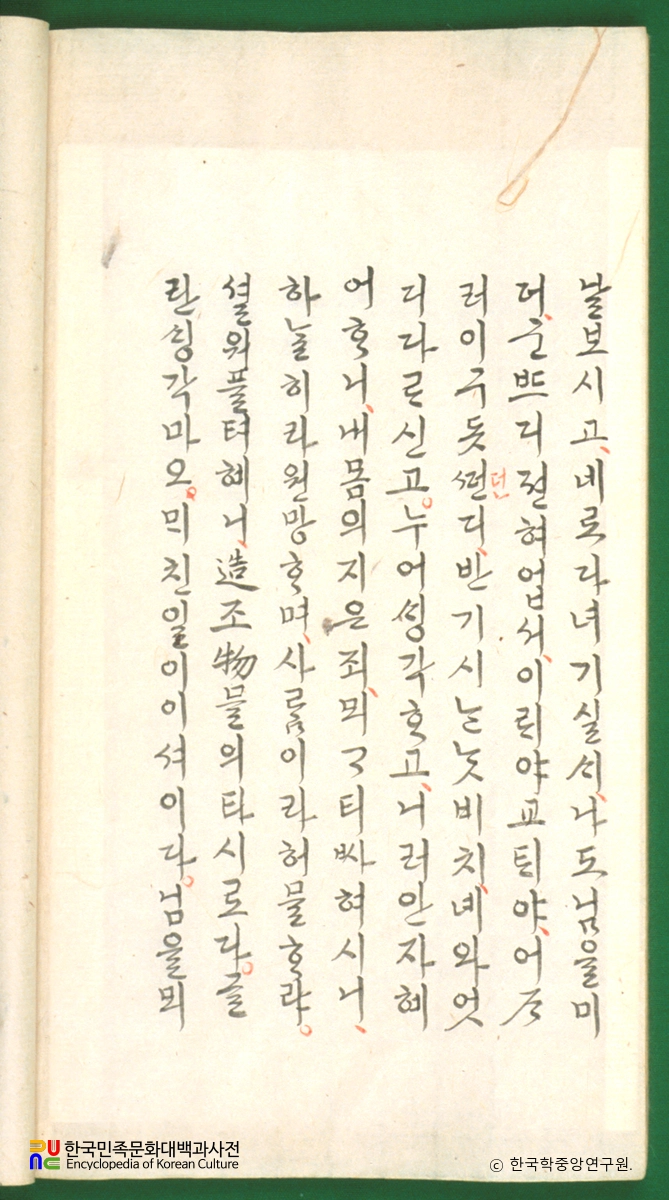 날보시고네로다녀기실ᄉᆡ나도님을미
더군ᄠᅳ디젼혀업서이ᄅᆡ야교ᄐᆡ야어ᄌᆞ
러이구돗ᄯᅥᆫ디반기시ᄂᆞᆫᄂᆞᆺ비치녜와엇
던
디다ᄅᆞ신고누어ᄉᆡᆼ각ᄒᆞ고니러안자혜
어ᄒᆞ니내몸의지은죄뫼ᄀᆞ티ᄡᅡ혀시니
하ᄂᆞᆯ히라원망ᄒᆞ며사ᄅᆞᆷ이라허믈ᄒᆞ랴
셜워플텨혜니造조物믈의타시로다글
란ᄉᆡᆼ각마오ᄆᆡ친일이이셔이다님을뫼
한국민족문화대백과사전
Encyclopedia of Korean Culture
ⓒ 한국학중앙연구원.